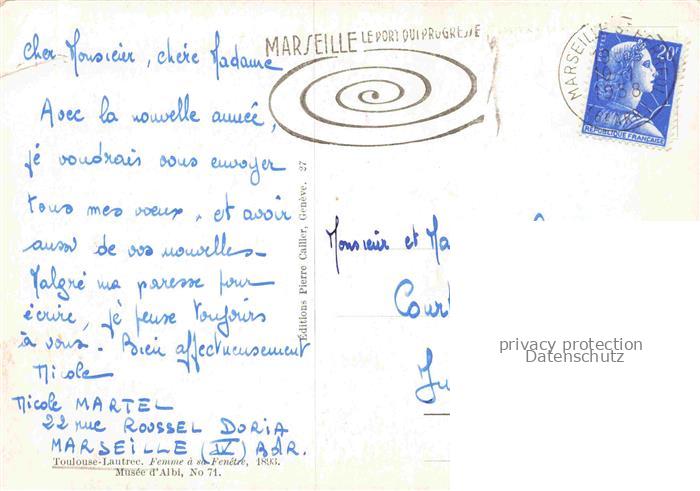 Cher Monsieur, chère Madame
Avec la nouvelle année,
jé voudrais vous envoyer
tous mes voeux, et avoir
aussi de vos nouvelles.
Malgré ma paresse pour
écrire, jé pense toujours
à vous. Bien affectueusement
Nicole
Nicole MARTEL
22 rue ROUSSEL DORIA
MARSEILLE (IV) BdR.
Toulouse-Lautrec. Femme à sa Fenêtre, 1893.
Musée d'Albi, No 71.
Editions Pierre Cailler, Genève. 27
MARSEILLE LE PORT QUI PROGRESSE
MARSEILLE
1958
POSTES
20F
REPUBLIQUE FRANÇAISE
Monsieur et Ma
Cour
Ju
privacy protection
Datenschutz